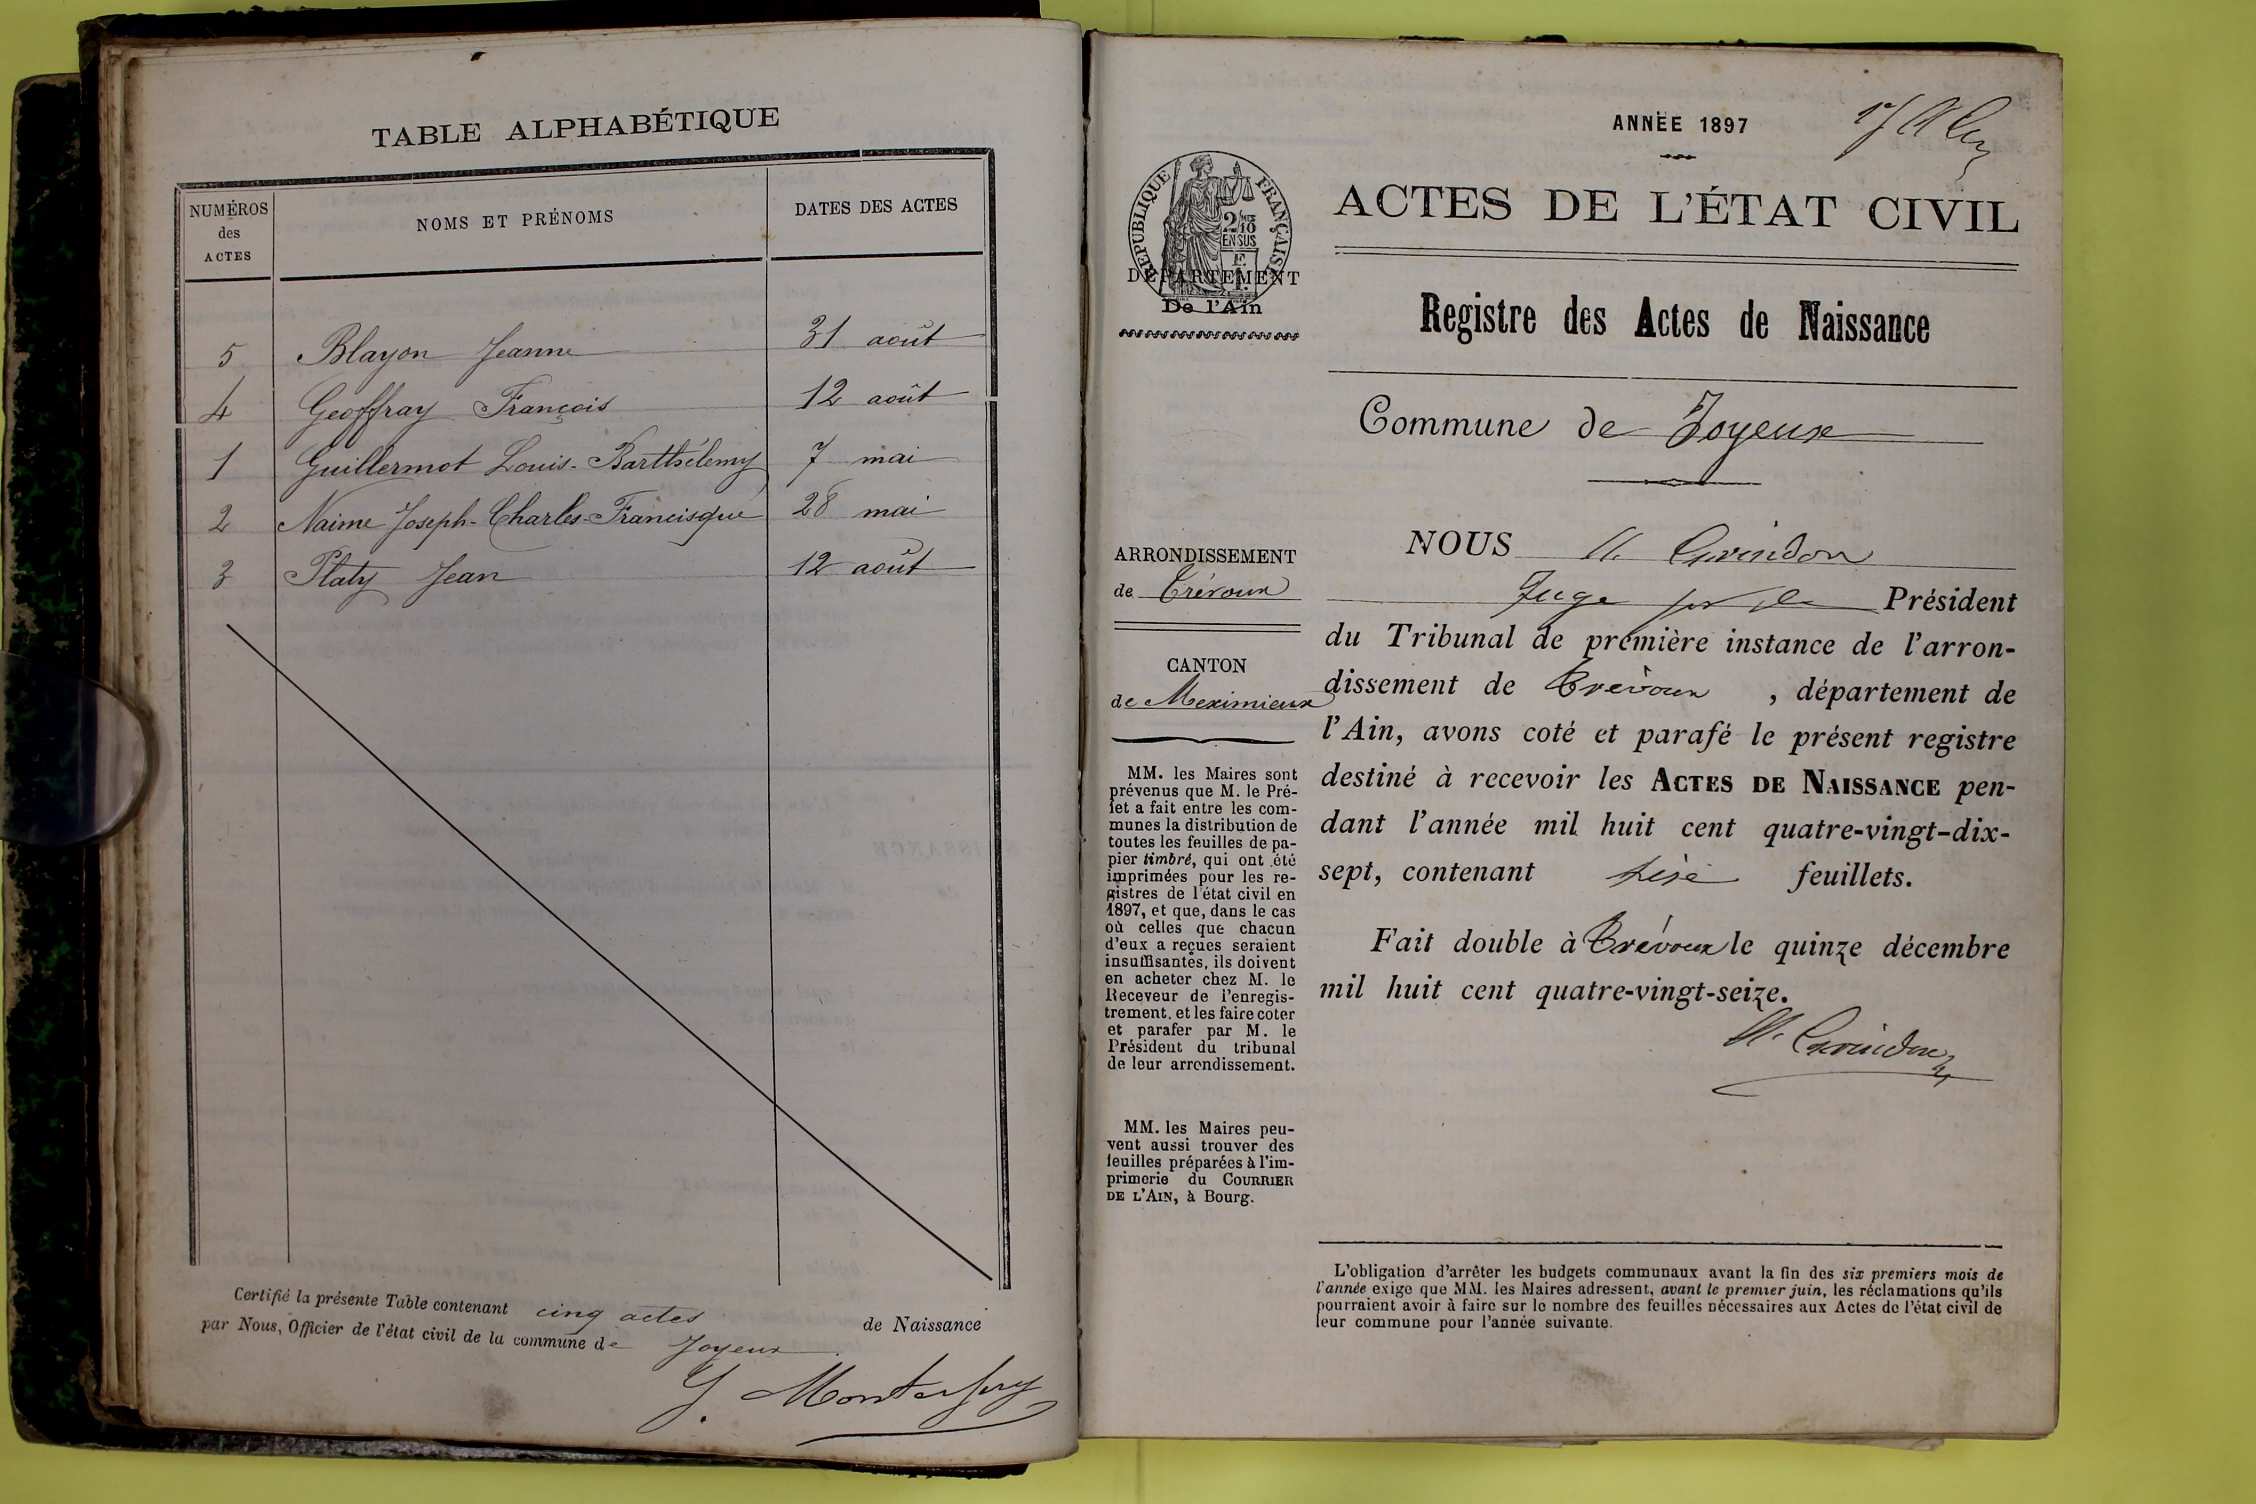 TABLE ALPHABÉTIQUE
NUMÉROS des ACTES
NOMS ET PRÉNOMS
DATES DES ACTES
5 Blayon Jeanne 31 août
4 Geoffray François 12 août
1 Guillermot Louis-Barthélemy 7 mai
2 Naime Joseph-Charles-Francisque 28 mai
3 Platy Jean 12 août
Certifié la présente Table contenant cinq actes de Naissance
par Nous, Officier de l'état civil de la commune de Joyeux
ANNÉE 1897
RÉPUBLIQUE FRANÇAISE
2/10
EN SUS
DÉPARTEMENT
De l'Ain
ARRONDISSEMENT
de Trévoux
CANTON
de Meximieux
MM. les Maires sont
prévenus que M. le Pré-
fet a fait entre les com-
munes la distribution de
toutes les feuilles de pa-
pier timbré, qui ont été
imprimées pour les re-
gistres de l'état civil en
1897, et que, dans le cas
où celles que chacun
d'eux a reçues seraient
insuffisantes, ils doivent
en acheter chez M. le
Receveur de l'enregis-
trement, et les faire coter
et parafer par M. le
Président du tribunal
de leur arrondissement.
MM. les Maires peu-
vent aussi trouver des
feuilles préparées à l'im-
primerie du COURRIER
DE L'AIN, à Bourg.
ACTES DE L'ÉTAT CIVIL
Registre des Actes de Naissance
Commune de Joyeux
NOUS
Juge Président
du Tribunal de première instance de l'arron-
dissement de Trévoux, département de
l'Ain, avons coté et parafé le présent registre
destiné à recevoir les ACTES DE NAISSANCE pen-
dant l'année mil huit cent quatre-vingt-dix-
sept, contenant feuillets.
Fait double à Trévoux le quinze décembre
mil huit cent quatre-vingt-seize.
L'obligation d'arrêter les budgets communaux avant la fin des six premiers mois de
l'année exige que MM. les Maires adressent, avant le premier juin, les réclamations qu'ils
pourraient avoir à faire sur le nombre des feuilles nécessaires aux Actes de l'état civil de
leur commune pour l'année suivante.